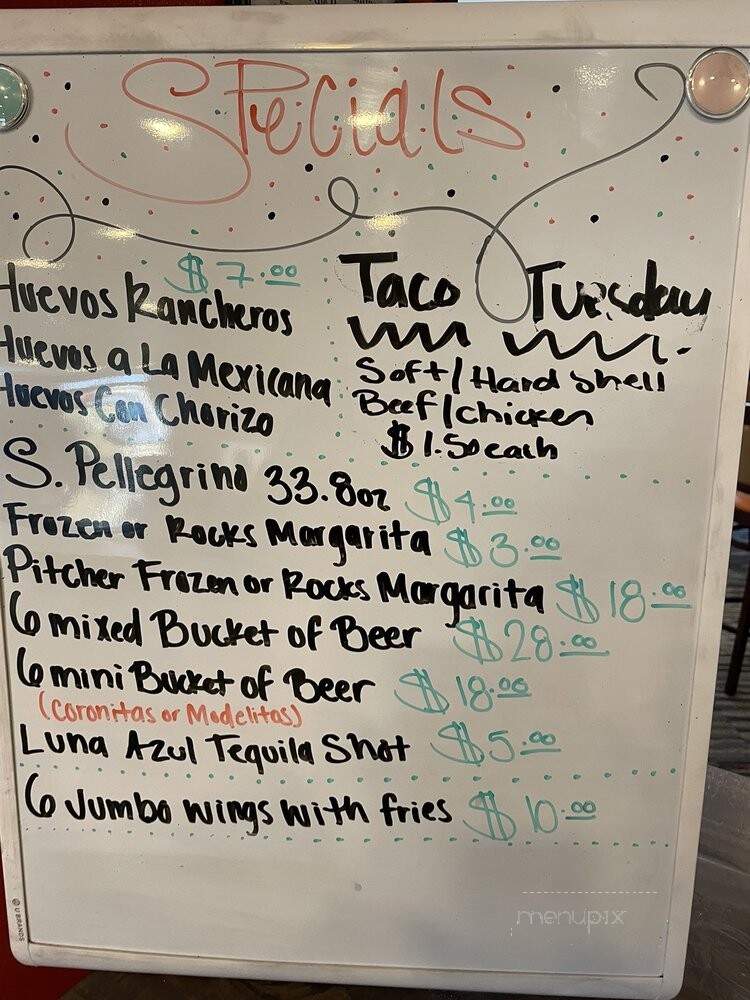 Specials
$7.00
Huevos Rancheros
Huevos a La Mexicana
Huevos Con Chorizo
Taco Tuesday
Soft/Hard Shell
Beef/chicken
$1.50 each
S. Pellegrino 33.8oz $4.00
Frozen or Rocks Margarita $3.00
Pitcher Frozen or Rocks Margarita $18.00
6 mixed Bucket of Beer $28.00
6 mini Bucket of Beer $18.00
(Coronitas or Modelitas)
Luna Azul Tequila Shot $5.00
6 Jumbo wings with fries $10.00
U BRANDS
menupix